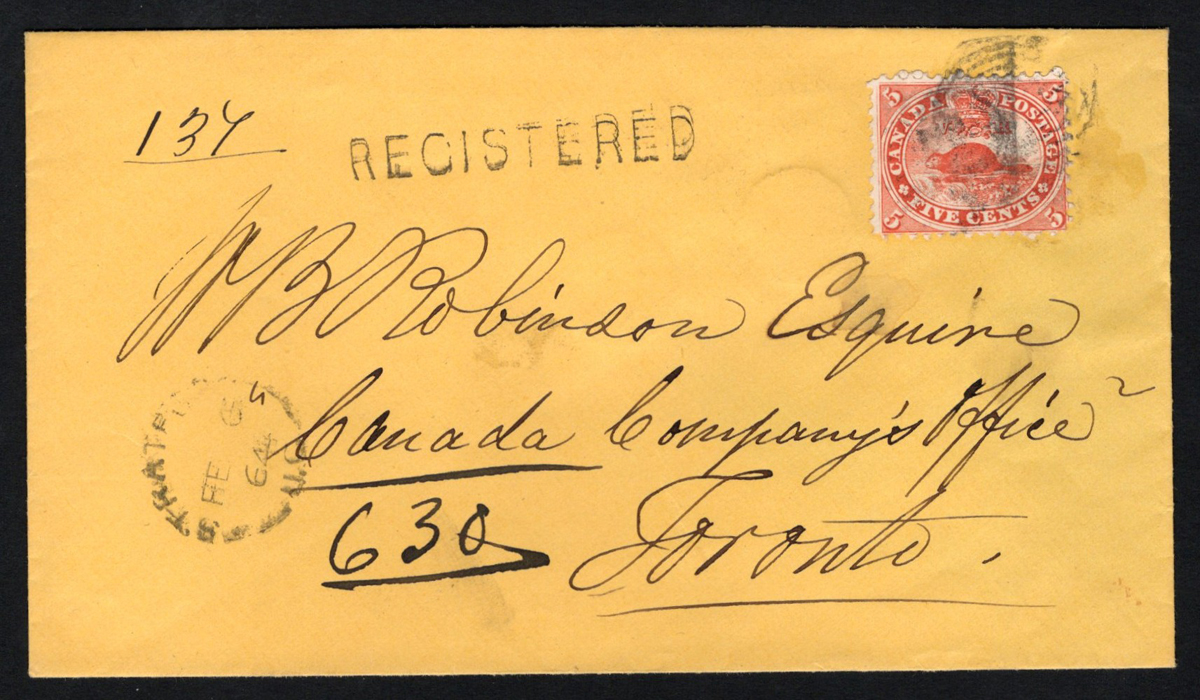 137
REGISTERED
5 CANADA POSTAGE 5
5 FIVE CENTS 5
W B Robinson Esquire
Canada Company's Office
Toronto.
630
FE 6
64
U.C